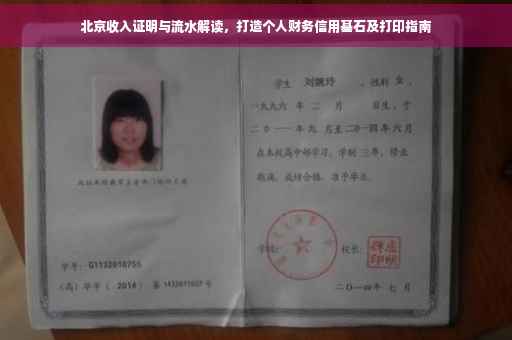 北京收入证明与流水解读，打造个人财务信用基石及打印指南
学生 刘婉玲 ，性别 女 ，
一九九六 年 二 月 日生，于
二〇一一年九 月至二〇一四年 六月
在本校高中部学习，学制 三年，修业
期满，成绩合格，准予毕业。
学校：
校长：
学号：G1132010755
（高）毕字（ 2014 ）第 1432011027 号
二〇一四年 七 月